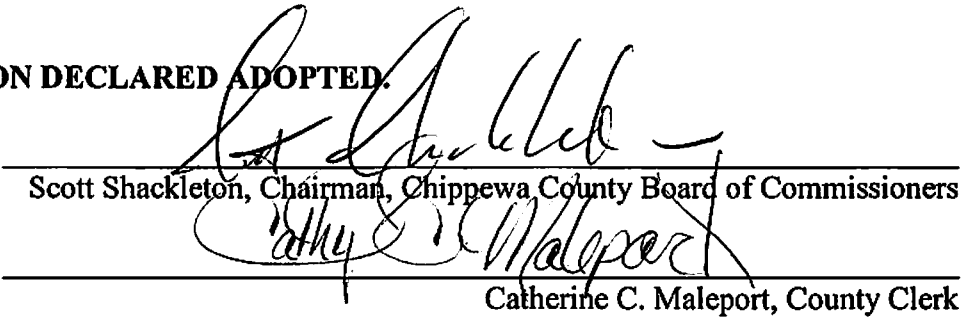 ON DECLARED ADOPTED.
Scott Shackleton
Scott Shackleton, Chairman, Chippewa County Board of Commissioners
Cathy C. Maleport
Catherine C. Maleport, County Clerk